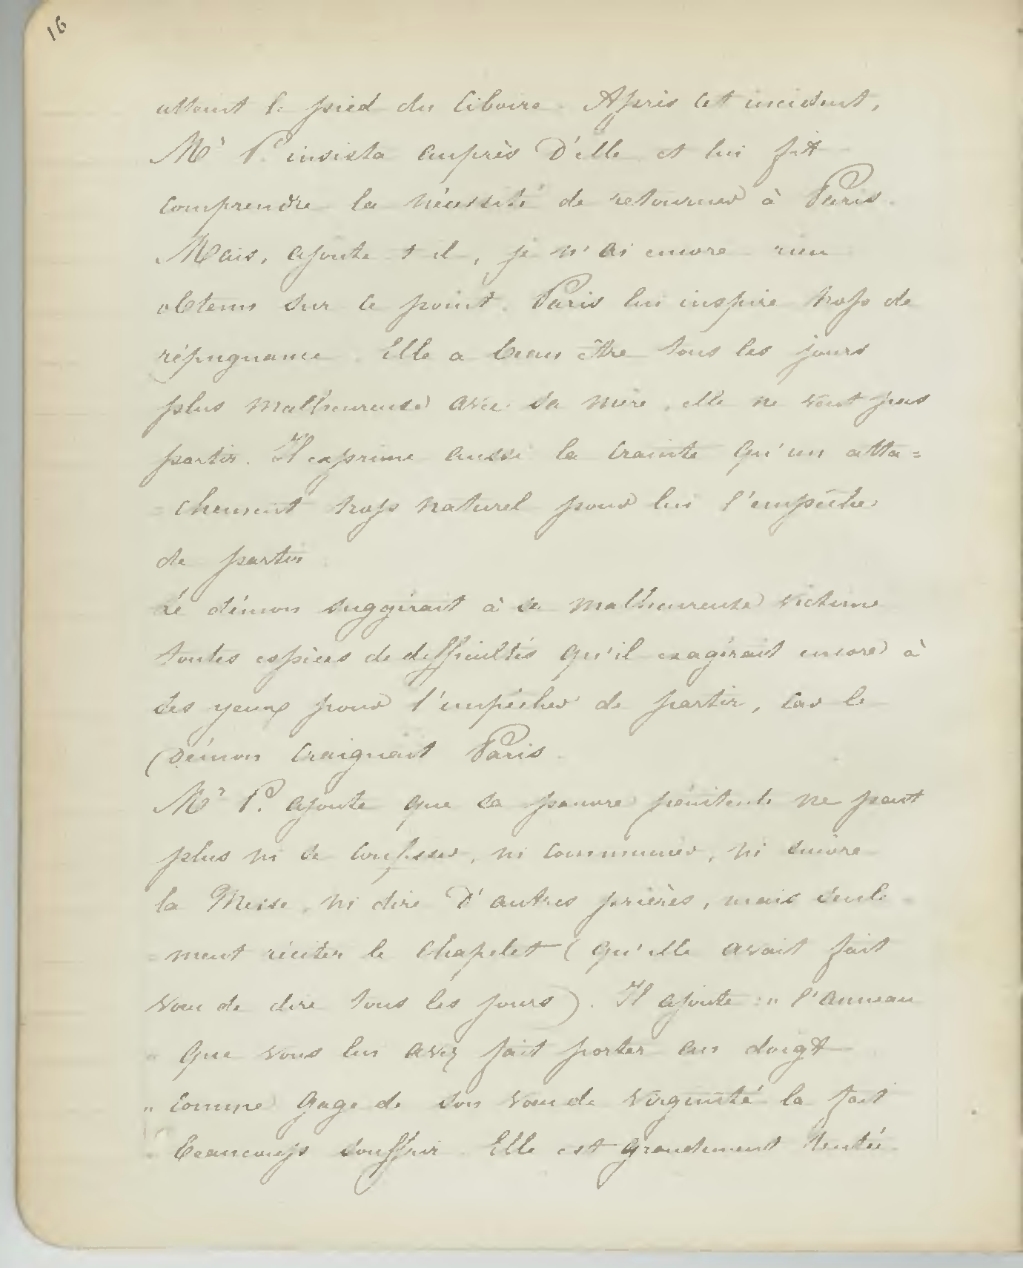 16
atteint le pied du Ciboire. Après cet incident,
Mr P. insista auprès d'elle et lui fit
comprendre la nécessité de retourner à Paris.
Mais, ajoute t il, je n'ai encore rien
obtenu sur ce point. Paris lui inspire trop de
répugnance. Elle a beau être tous les jours
plus malheureuse avec sa mère, elle ne veut pas
partir. Il exprime aussi la crainte qu'un atta=
=chement trop naturel pour lui l'empêche
de partir
Le démon suggérait à sa malheureuse victime
toutes espèces de difficultés qu'il exagérait encore à
ses yeux pour l'empêcher de partir, car le
Démon craignait Paris.
Mr P. ajoute que sa pauvre pénitente ne peut
plus ni se confesser, ni communier, ni suivre
la Messe, ni dire d'autres prières, mais seule=
=ment réciter le chapelet (qu'elle avait fait
vœu de dire tous les jours). Il ajoute : " l'anneau
" que vous lui avez fait porter au doigt
" comme gage de son vœu de virginité la fait
" beaucoup souffrir. Elle est grandement tentée